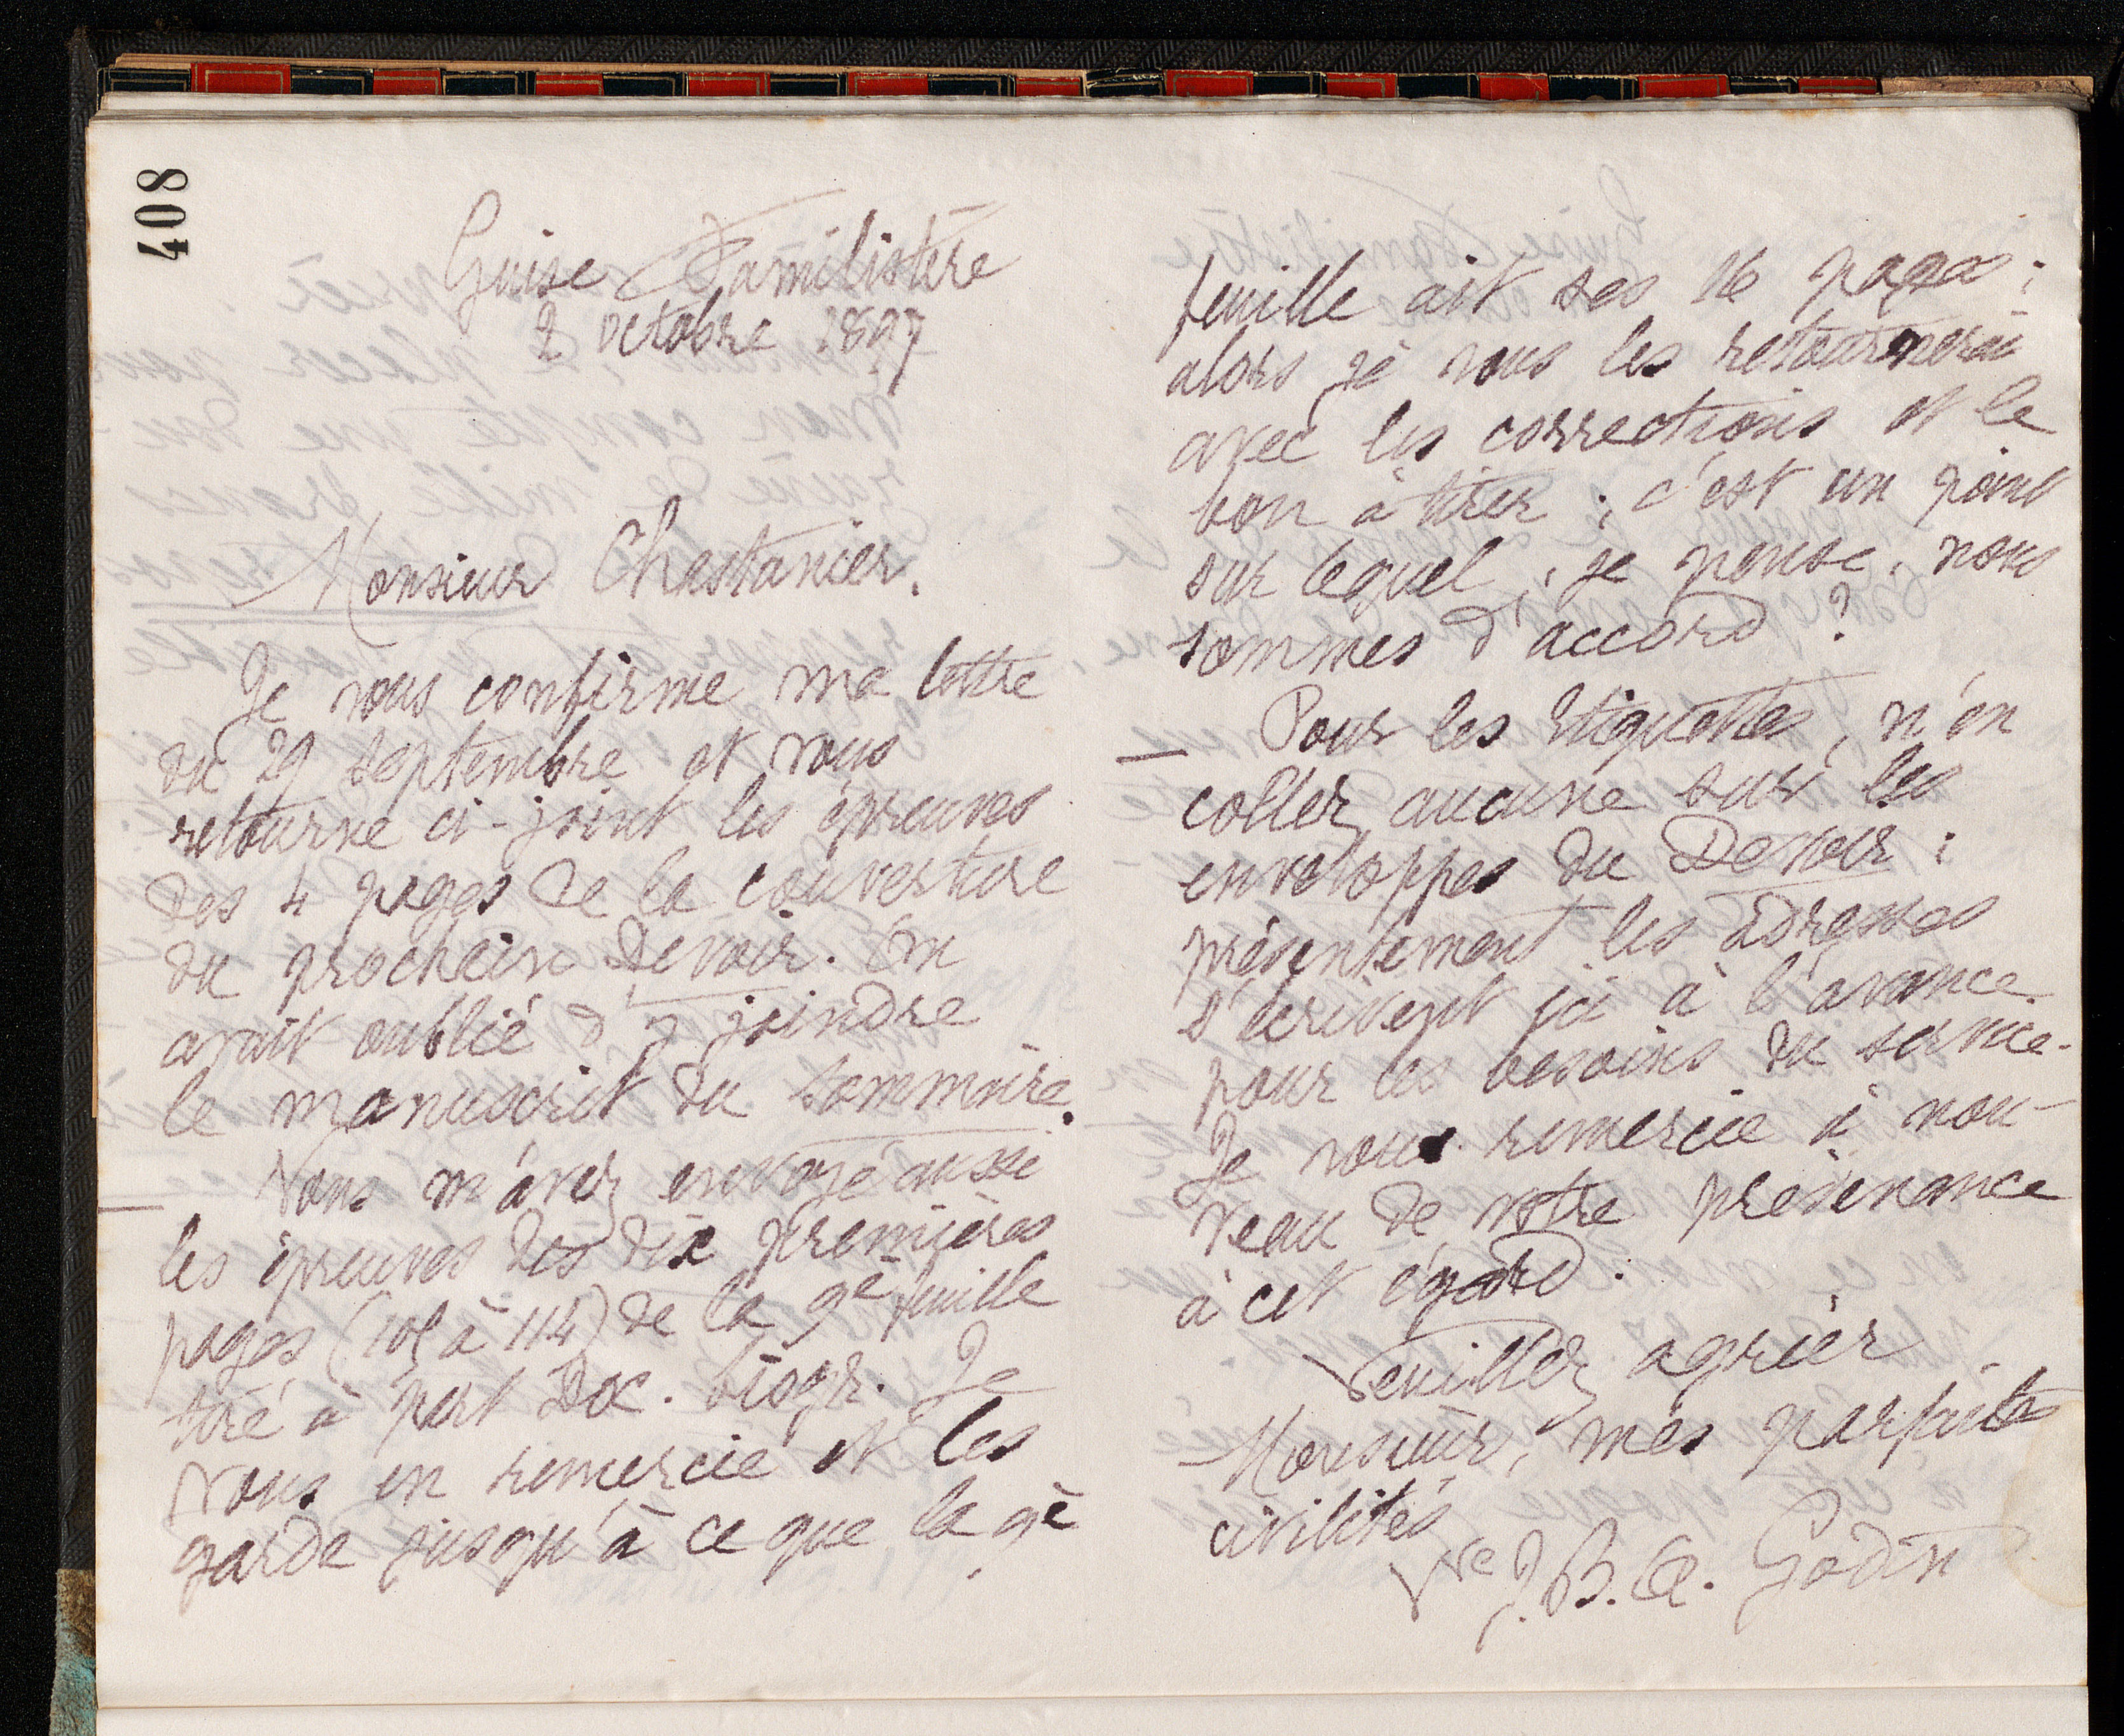 408
Guise Familistère
2 octobre 1897
Monsieur Chastanier.
Je vous confirme ma lettre
du 29 septembre et vous
retourne ci-joint les épreuves
des 4 pages de la couverture
du prochain Devoir. On
avait oublié d'y joindre
le manuscrit du sommaire.
— Vous m'avez envoyé aussi
les épreuves des dix premières
pages (105 à 114) de la 9e feuille
tiré à part Doc. biogr. Je
vous en remercie et les
garde jusqu'à ce que la 9e
feuille ait ses 16 pages;
alors je vous les retournerai
avec les corrections et le
bon à tirer; c'est un point
sur lequel, je pense, nous
sommes d'accord ?
— Pour les étiquettes, n'en
collez aucune sur les
enveloppes du Devoir;
présentement les adresses
s'écrivent ici à l'avance
pour les besoins du service.
Je vous remercie à nou-
veau de votre prévenance
à cet égard.
Veuillez agréer
Monsieur, mes parfaites
civilités
Vve J. B. A. Godin